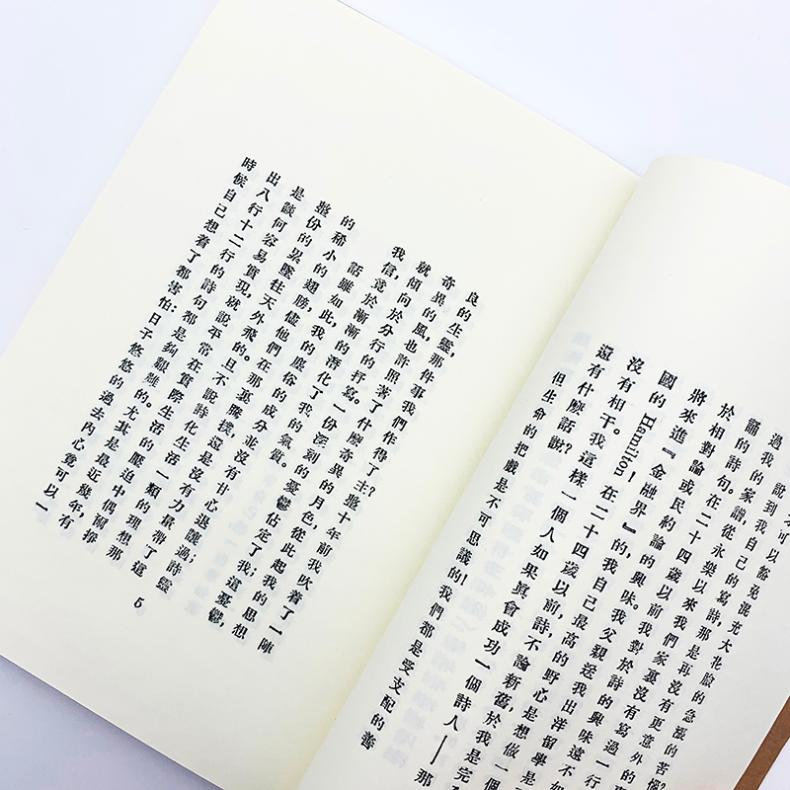 才可以豁免混充大花臉的急漲的苦惱
說到我自己的寫詩,那是再沒有更意外的
過我的家譜,從永樂以來我們家裏沒有寫過一行
誦的詩句。在二十四歲以前我對於詩的興味遠不如
於相對論或民約論的興味。我父親送我出洋留學是
將來進『金融界』的,我自己最高的野心是想做一個
國的Hamilton!在二十四歲以前,詩,不論新舊,於我是完
沒有相干。我這樣一個人如果眞會成功一個詩人——那
還有什麼話說?
但生命的把戲是不可思議的!我們都是受支配的善
良的生靈,那件事我們作得了主?整十年前我吹着了一陣
奇異的風,也許照著了什麼奇異的月色,從此起我的思想
就傾向於分行的抒寫。一份深刻的憂鬱佔定了我;這憂鬱,
我信,竟於漸漸的潛化了我的氣質。
話雖如此,我的塵俗的成分並沒有甘心退讓過;詩靈
的稀小的翅膀,儘他們在那裏騰撲,還是沒有力量帶了這
整份的累墜往天外飛的。且不說詩化生活一類的理想那
是談何容易實現,就說平常在實際生活的壓迫中偶爾撐
出八行十二行的詩句都是夠艱難的。尤其是最近幾年,有
時候自己想着了都害怕:日子悠悠的過去內心竟可以一
5